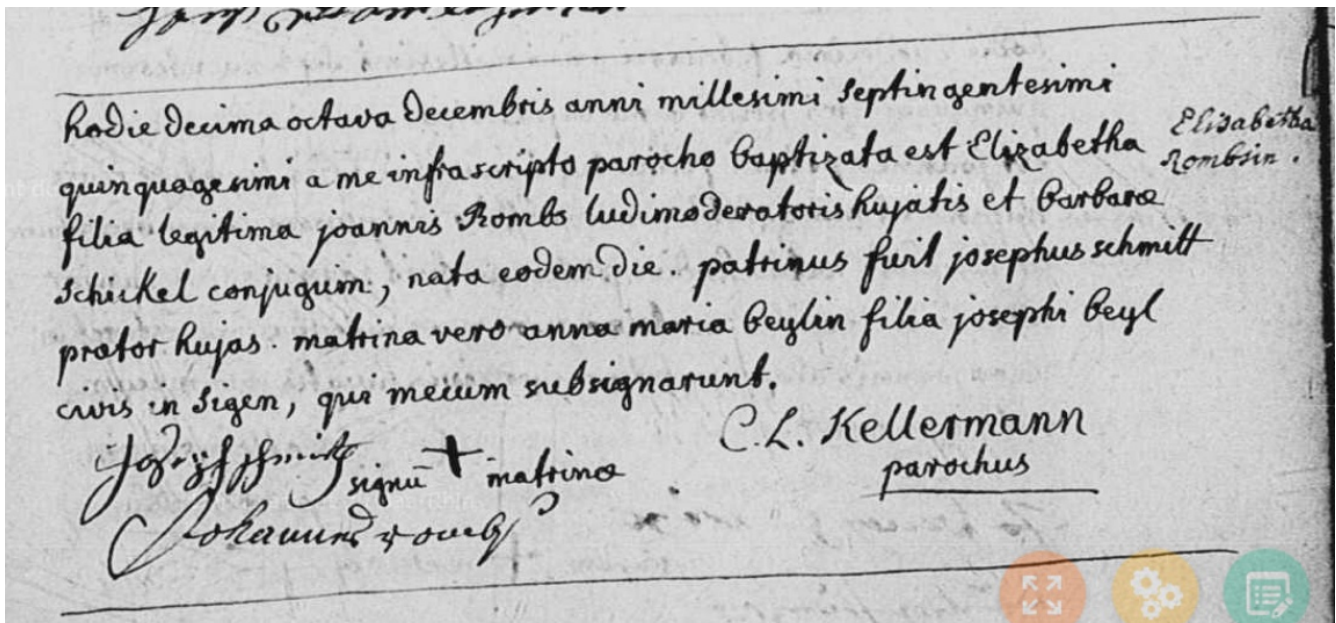 hodie decima octava decembris anni millesimi septingentesimi
quinquagesimi a me infra scripto parocho baptizata est Elizabetha
filia legitima joannis Rombs ludimoderatoris hujatis et barbaræ
schickel conjugum, nata eodem die. patrinus fuit josephus schmitt
prætor hujas. matrina vero anna maria beylin filia josephi beyl
civis in sigen, qui mecum subsignarunt.
Elisabetha
Rombsin.
C. L. Kellermann
parochus
Joseph schmitt
signū + matrinæ
Johannes rombs